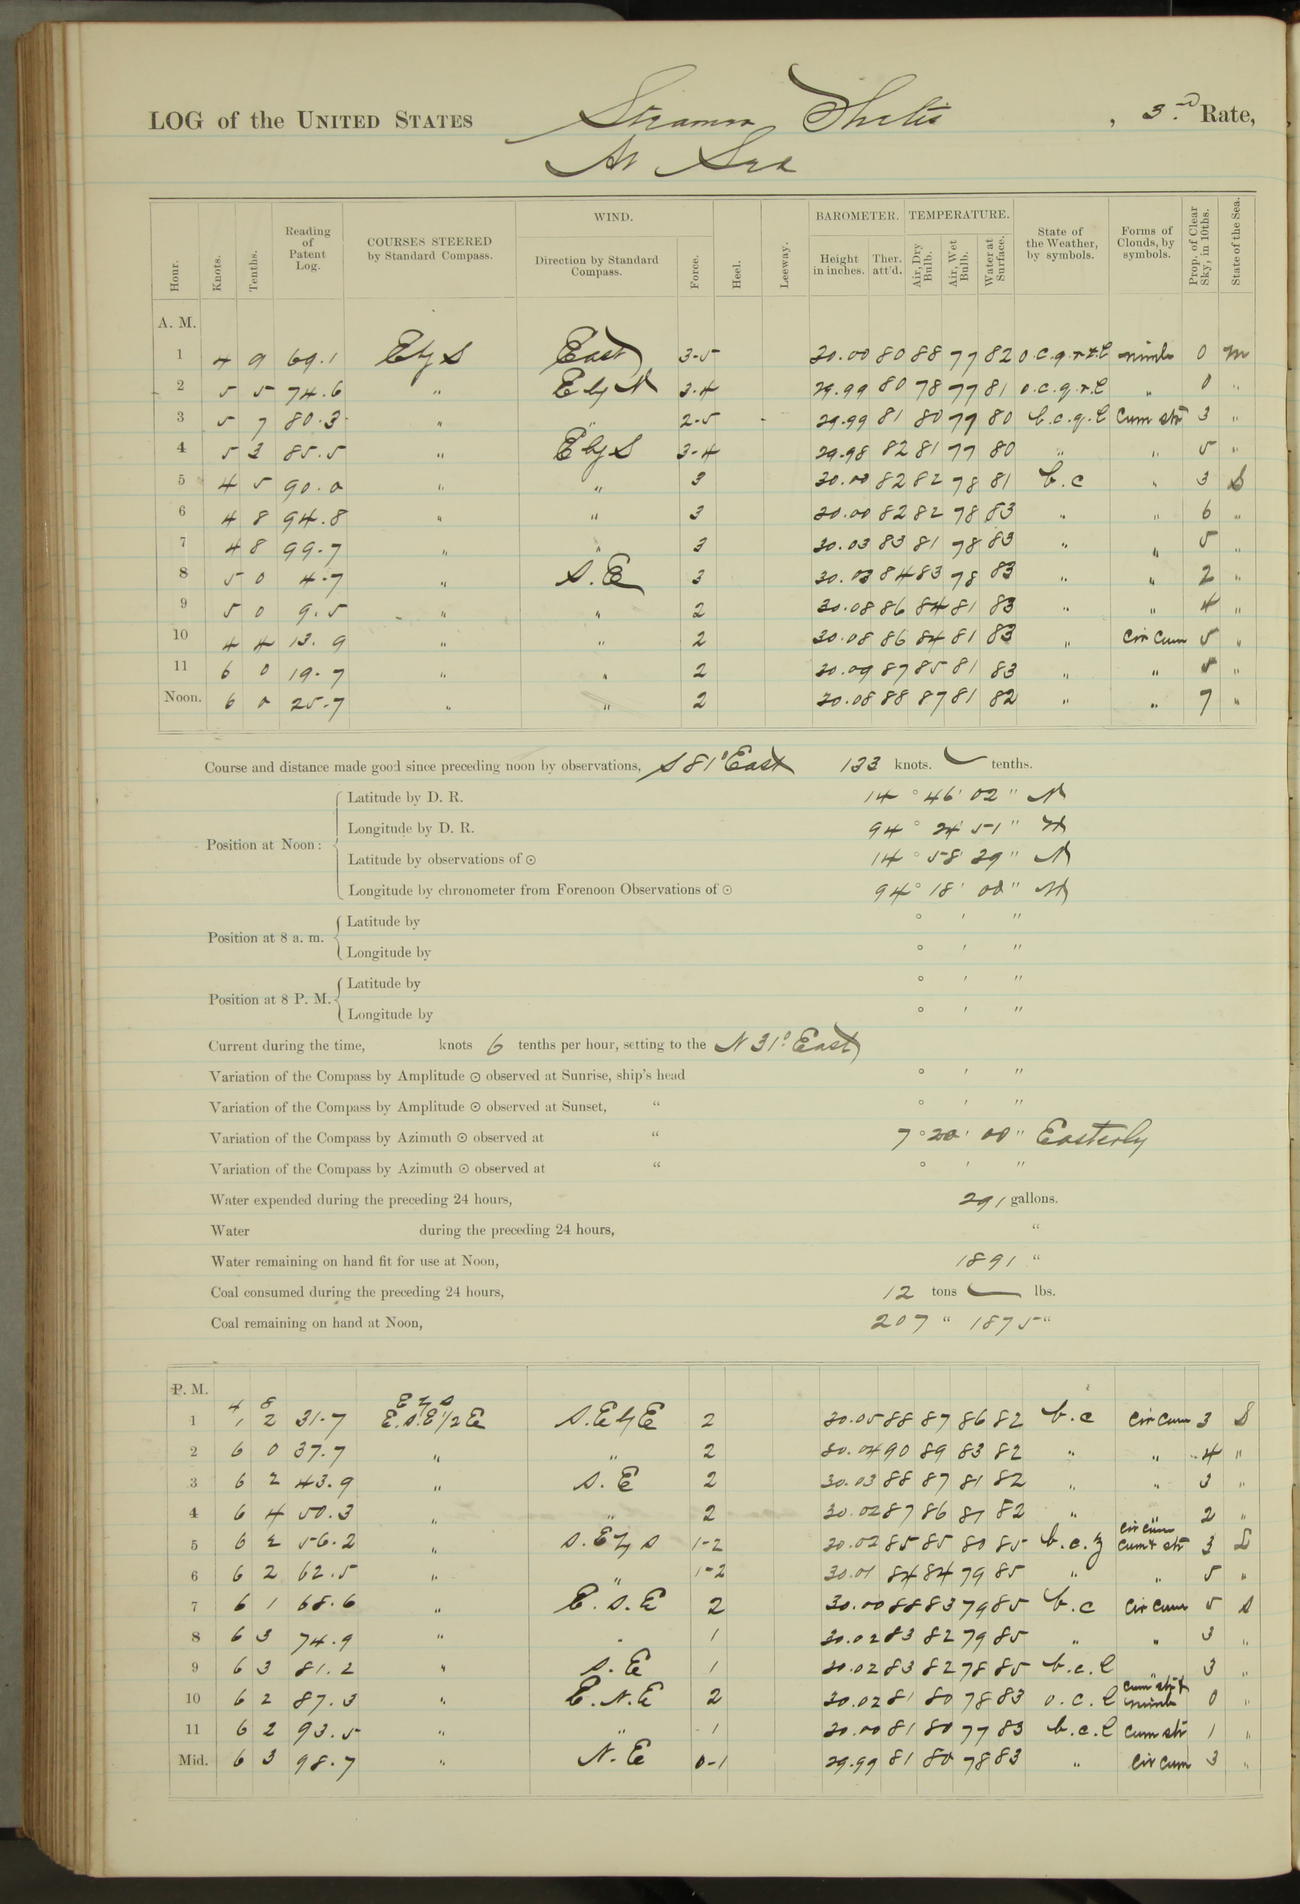 LOG of the UNITED STATES Steamer Thetis, 3rd Rate,
At Sea
Hour. Knots. Tenths. Reading of Patent Log. COURSES STEERED by Standard Compass. WIND. Direction by Standard Compass. Force. Heel. Leeway. BAROMETER. Height in inches. Ther. att'd. TEMPERATURE. Air, Dry Bulb. Air, Wet Bulb. Water at Surface. State of the Weather, by symbols. Forms of Clouds, by symbols. Prop. of Clear Sky, in 10ths. State of the Sea.
A. M.
1 4 9 69.1 E by S East 3-5 30.00 80 88 77 82 o.c.q.r.t.l nimb 0 m
2 5 5 74.6 " E by N 3-4 29.99 80 78 77 81 o.c.q.r.l " 0 "
3 5 7 80.3 " " 2-5 29.99 81 80 77 80 b.c.q.l Cum str 3 "
4 5 3 85.5 " E by S 3-4 29.98 82 81 77 80 " " 5 "
5 4 5 90.0 " " 3 30.00 82 82 78 81 b.c " 3 S
6 4 8 94.8 " " 3 30.00 82 82 78 83 " " 6 "
7 4 8 99.7 " " 3 30.03 83 81 78 83 " " 5 "
8 5 0 4.7 " S.E 3 30.03 84 83 78 83 " " 2 "
9 5 0 9.5 " " 2 30.08 86 84 81 83 " " 4 "
10 4 4 13.9 " " 2 30.08 86 84 81 83 " Cir Cum 5 "
11 6 0 19.7 " " 2 30.09 87 85 81 83 " " "
Noon. 6 0 25.7 " " 2 30.08 88 87 81 82 " " 7 "
Course and distance made good since preceding noon by observations, S 81° East 133 knots. — tenths.
Position at Noon: Latitude by D. R. 14° 46' 02" N
Longitude by D. R. 94° 24' 51" W
Latitude by observations of ⊙ 14° 58' 29" N
Longitude by chronometer from Forenoon Observations of ⊙ 94° 18' 00" W
Position at 8 a. m. Latitude by ° ' "
Longitude by ° ' "
Position at 8 P. M. Latitude by ° ' "
Longitude by ° ' "
Current during the time, knots 6 tenths per hour, setting to the N 31° East
Variation of the Compass by Amplitude ⊙ observed at Sunrise, ship's head ° ' "
Variation of the Compass by Amplitude ⊙ observed at Sunset, " ° ' "
Variation of the Compass by Azimuth ⊙ observed at " 7° 20' 00" Easterly
Variation of the Compass by Azimuth ⊙ observed at " ° ' "
Water expended during the preceding 24 hours, 291 gallons.
Water during the preceding 24 hours, "
Water remaining on hand fit for use at Noon, 1891 "
Coal consumed during the preceding 24 hours, 12 tons — lbs.
Coal remaining on hand at Noon, 207 " 1875 "
P. M.
4 8 E by S
1 1 2 31.7 E.S.E 1/2 E S.E by E 2 30.05 88 87 86 82 b.c Cir Cum 3 S
2 6 0 37.7 " " 2 30.04 90 89 83 82 " " 4 "
3 6 2 43.9 " S.E 2 30.03 88 87 81 82 " " 3 "
4 6 4 50.3 " " 2 30.02 87 86 81 82 " " 2 "
Cir Cum
5 6 2 56.2 " S.E by S 1-2 30.02 85 85 80 85 b.c.z Cum + str 3
6 6 2 62.5 " " 1-2 30.01 84 84 79 85 " " 5 "
7 6 1 68.6 " E.S.E 2 30.00 88 83 79 85 b.c Cir Cum 5 S
8 6 3 74.9 " " 1 30.02 83 82 79 85 " " 3 "
9 6 3 81.2 " S.E 1 30.02 83 82 78 85 b.c.l " 3 "
Cum str +
10 6 2 87.3 " E.N.E 2 30.02 81 80 78 83 o.c.l nimb 0 "
11 6 2 93.5 " " 1 30.00 81 80 77 83 b.c.l Cum str 1 "
Mid. 6 3 98.7 " N.E 0-1 29.99 81 80 78 83 " Cir Cum 3 "